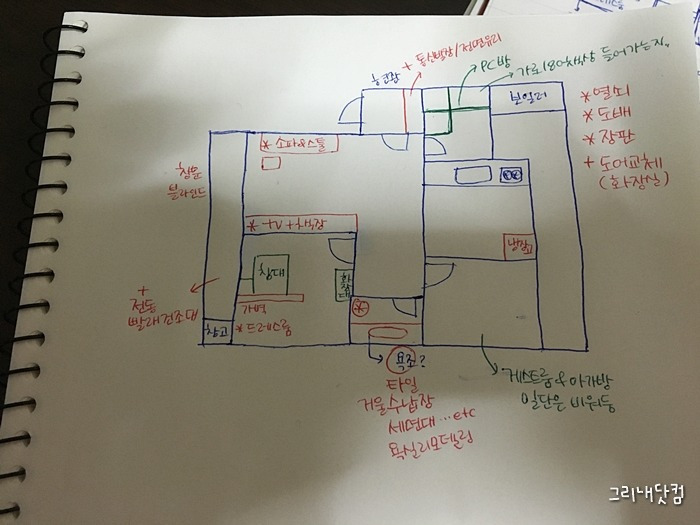 현관
+ 통신발장/전면유리
PC방
가로180책상 들어가는지..
보일러
* 열쇠
* 도배
* 장판
+ 도어교체
(화장실)
* 소파&스툴
창문
블라인드
* TV + 책장
냉장고
침대
화장대
가벽
* 드레스룸
창고
+
전동
빨래건조대
*
욕조?
타일
거울수납장
세면대...etc
욕실리모델링
게스트룸&아가방
일단은 비워둠
그리내닷컴